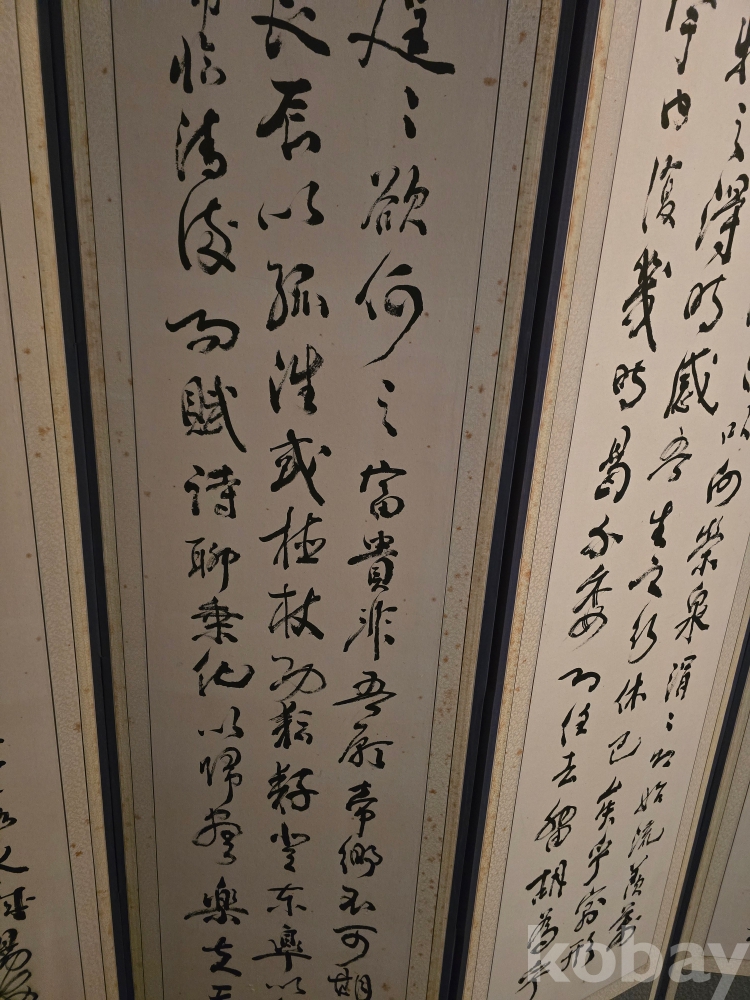 以向榮泉涓〻而始流羨萬
物之得時感吾生之行休已矣乎寓形
宇內復幾時曷不委心任去留胡為乎
遑〻欲何之富貴非吾願帝鄉不可期
良辰以孤往或植杖而耘耔登東皋以
嘯臨清流而賦詩聊乘化以歸盡樂夫天
kobay